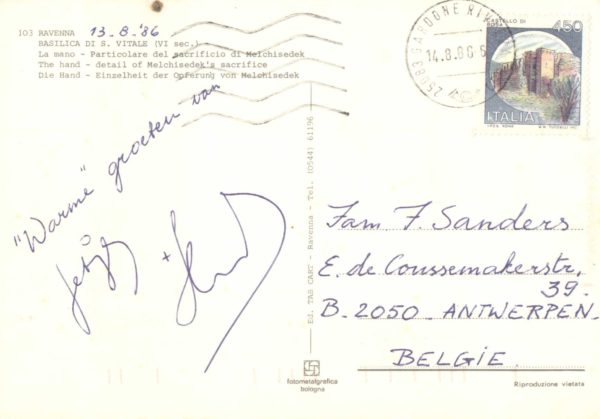 103 RAVENNA 13-8-'86
BASILICA DI S. VITALE (VI sec.)
La mano - Particolare del sacrificio di Melchisedek
The hand - detail of Melchisedek's sacrifice
Die Hand - Einzelheit der Opferung von Melchisedek
25083 GARDONE
14.8.86
CASTELLO DI
450
ITALIA
"Warme" groeten van
+
Ed. TAB CART - Ravenna - Tel. (0544) 61196
Fam F. Sanders
E. de Coussemakerstr,
39.
B. 2050 - ANTWERPEN.
BELGIE.
fotometalgrafica
bologna
Riproduzione vietata